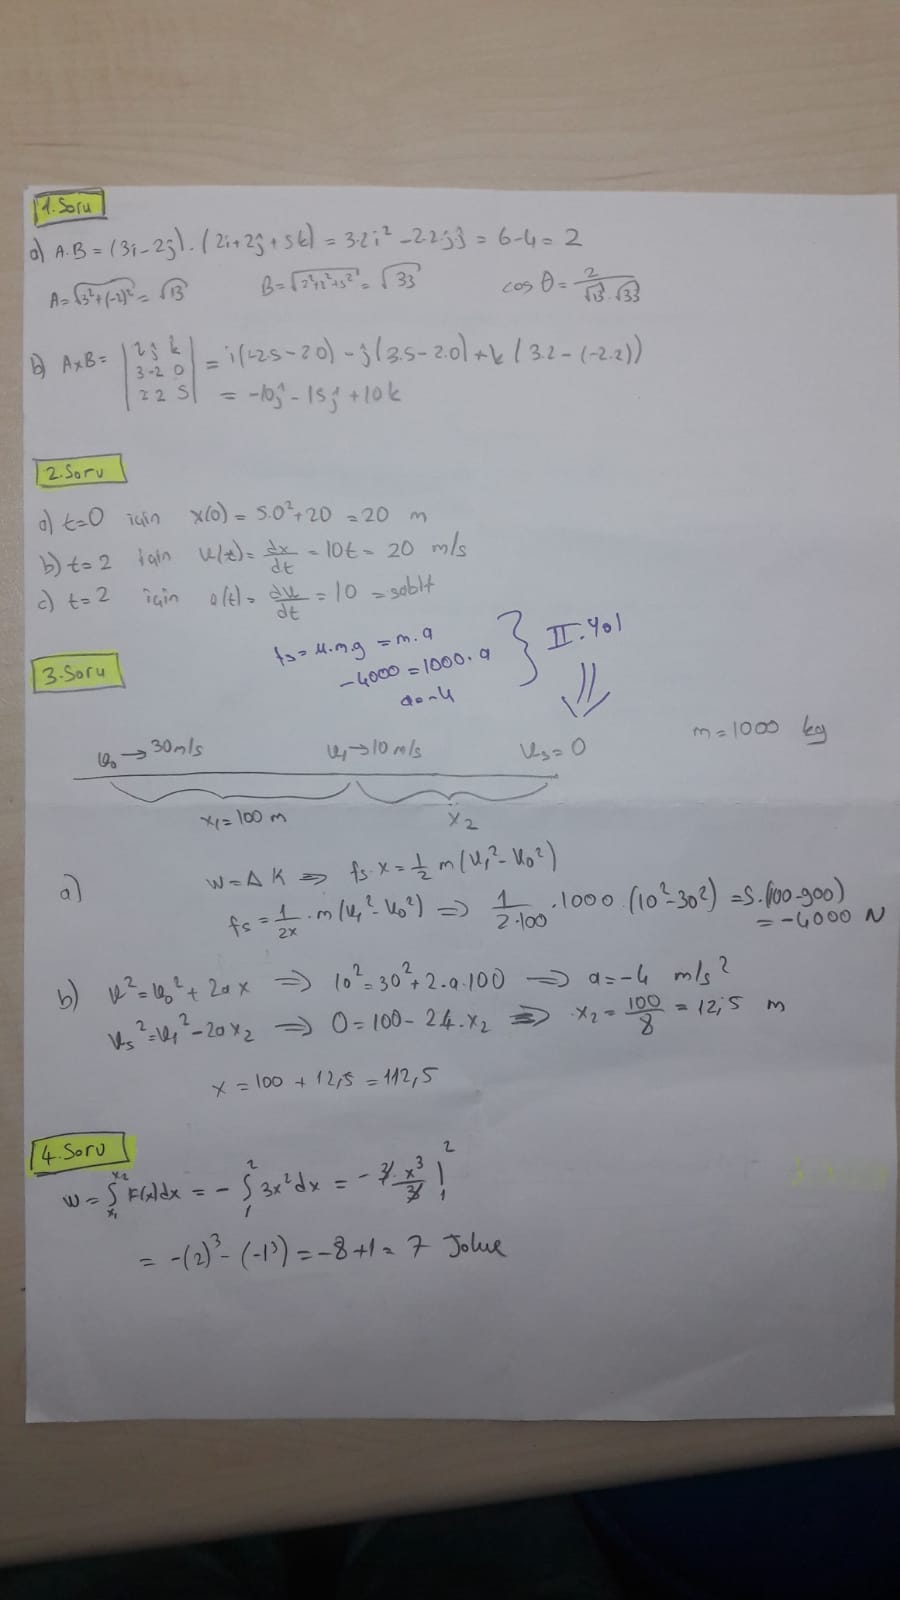 1.Soru
a) A.B = (3i-2j).(2i+2j+5k) = 3.2i² -2.2j.j = 6-4 = 2
A=√3²+(-2)² = √13 B=√2²+2²+5² = √33 cos θ = 2/√13.√33
b) AxB = |i j k| = i(-2.5-2.0) - j(3.5-2.0)+k(3.2-(-2.2))
3 -2 0
2 2 5 = -10i - 15j + 10k
2.Soru
a) t=0 için x(0) = 5.0²+20 = 20 m
b) t=2 için v(t) = dx/dt = 10t = 20 m/s
c) t=2 için a(t) = dv/dt = 10 = sabit
fs = μ.m.g = m.a
-4000 = 1000.a
a=-4
II.Yol
3.Soru
v₀→30m/s v₁→10m/s vs=0 m=1000 kg
x₁=100 m x₂
a) W=ΔK ⇒ fs.x = 1/2 m(v₁²-v₀²)
fs = 1/2x . m(v₁²-v₀²) ⇒ 1/2.100 .1000.(10²-30²) = 5.(100-900)
= -4000 N
b) v²=v₀²+2ax ⇒ 10²=30²+2.a.100 ⇒ a=-4 m/s²
vs²=v₁²-2ax₂ ⇒ 0=100-2.4.x₂ ⇒ x₂=100/8 = 12,5 m
x = 100 + 12,5 = 112,5
4.Soru
W = ∫x₁x₂ F(x)dx = - ∫₁² 3x²dx = -3 x³/3 |₁²
= -(2)³-(-1³) = -8+1 = 7 Jolue